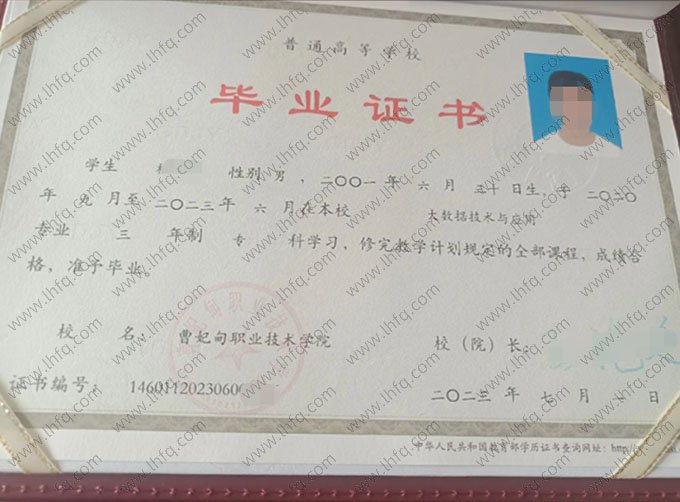 普通高等学校
毕业证书
学生 性别 男 ，二〇〇一 年 六 月 三十 日生，于 二〇二〇
年 九 月至 二〇二三 年 六 月在本校 大数据技术与应用
专业 三 年制 专 科学习，修完教学计划规定的全部课程，成绩合
格，准予毕业。
校 名： 曹妃甸职业技术学院 校（院）长：
证书编号： 14601120230600 二〇二三 年 七 月 日
中华人民共和国教育部学历证书查询网址：http://
www.lhfq.com